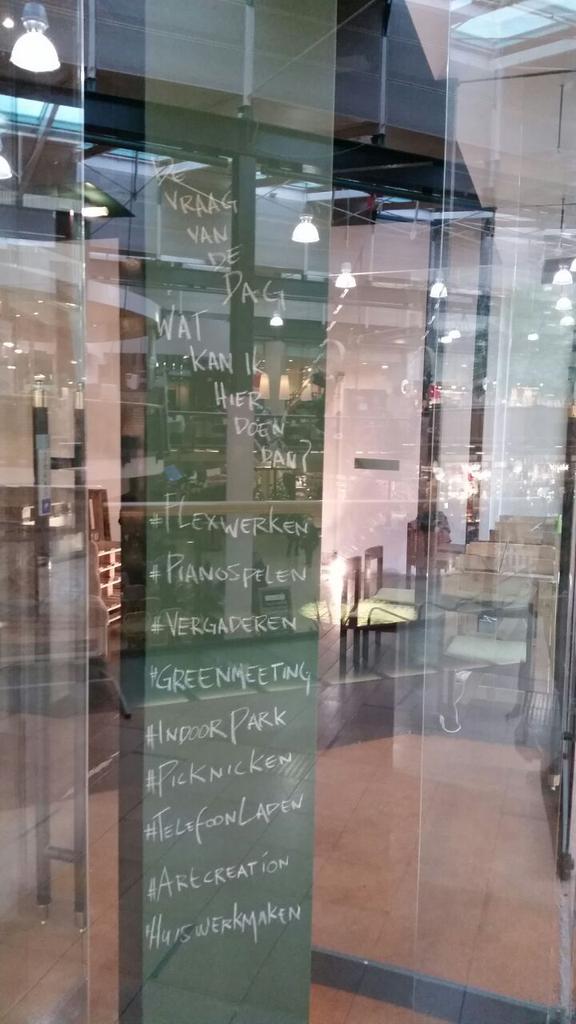 DE
VRAAG
VAN
DE
DAG
WAT
KAN IK
HIER
DOEN
DAN?
#FLEXWERKEN
#PIANOSPELEN
#VERGADEREN
#GREENMEETING
#INDOORPARK
#PICKNICKEN
#TELEFOONLADEN
#ARTCREATION
#HUISWERKMAKEN